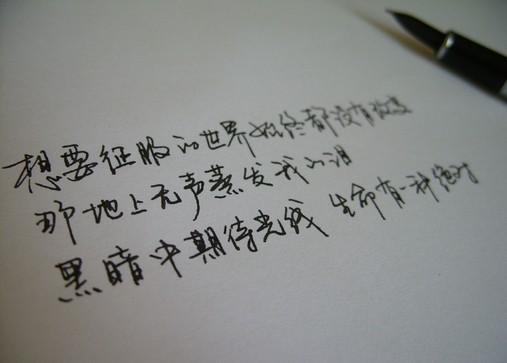 想要征服的世界始终都没有改变
那地上无声蒸发我的泪
黑暗中期待光线 生命有一种绝对